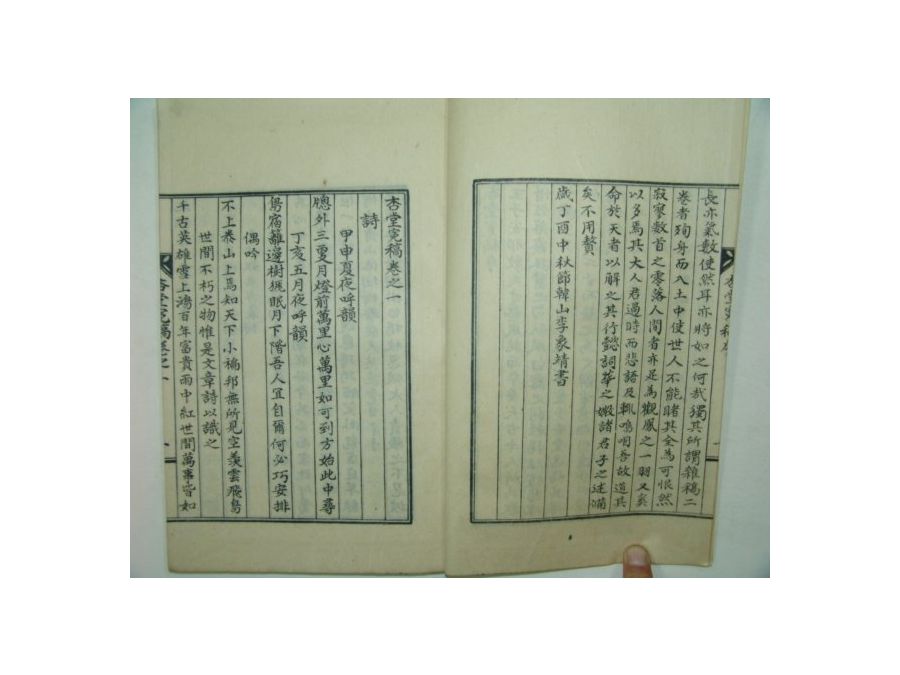 長亦氣數使然耳亦將如之何哉獨其所謂雜稿二
卷者殉身而入土中使世人不能睹其全為可恨然
寂寥數首之零落人間者亦足為觀鳳之一羽又奚
以多焉其大人君過時而悲語及輒嗚咽吾故道其
命於天者以解之其行懿詞華之媺諸君子之述備
矣不用贅
歲丁酉中秋節韓山李象靖書
杏堂寃稿卷之一
詩
甲申夏夜呼韻
牕外三更月燈前萬里心萬里如可到方始此中尋
丁亥五月夜呼韻
鳥宿籬邊樹猧眠月下階吾人宜自爾何必巧安排
偶吟
不上泰山上焉知天下小褊邦無所見空羡雲飛鳥
世間不朽之物惟是文章詩以識之
千古英雄雪上鴻百年富貴雨中紅世間萬事皆如
杏堂寃稿卷之一